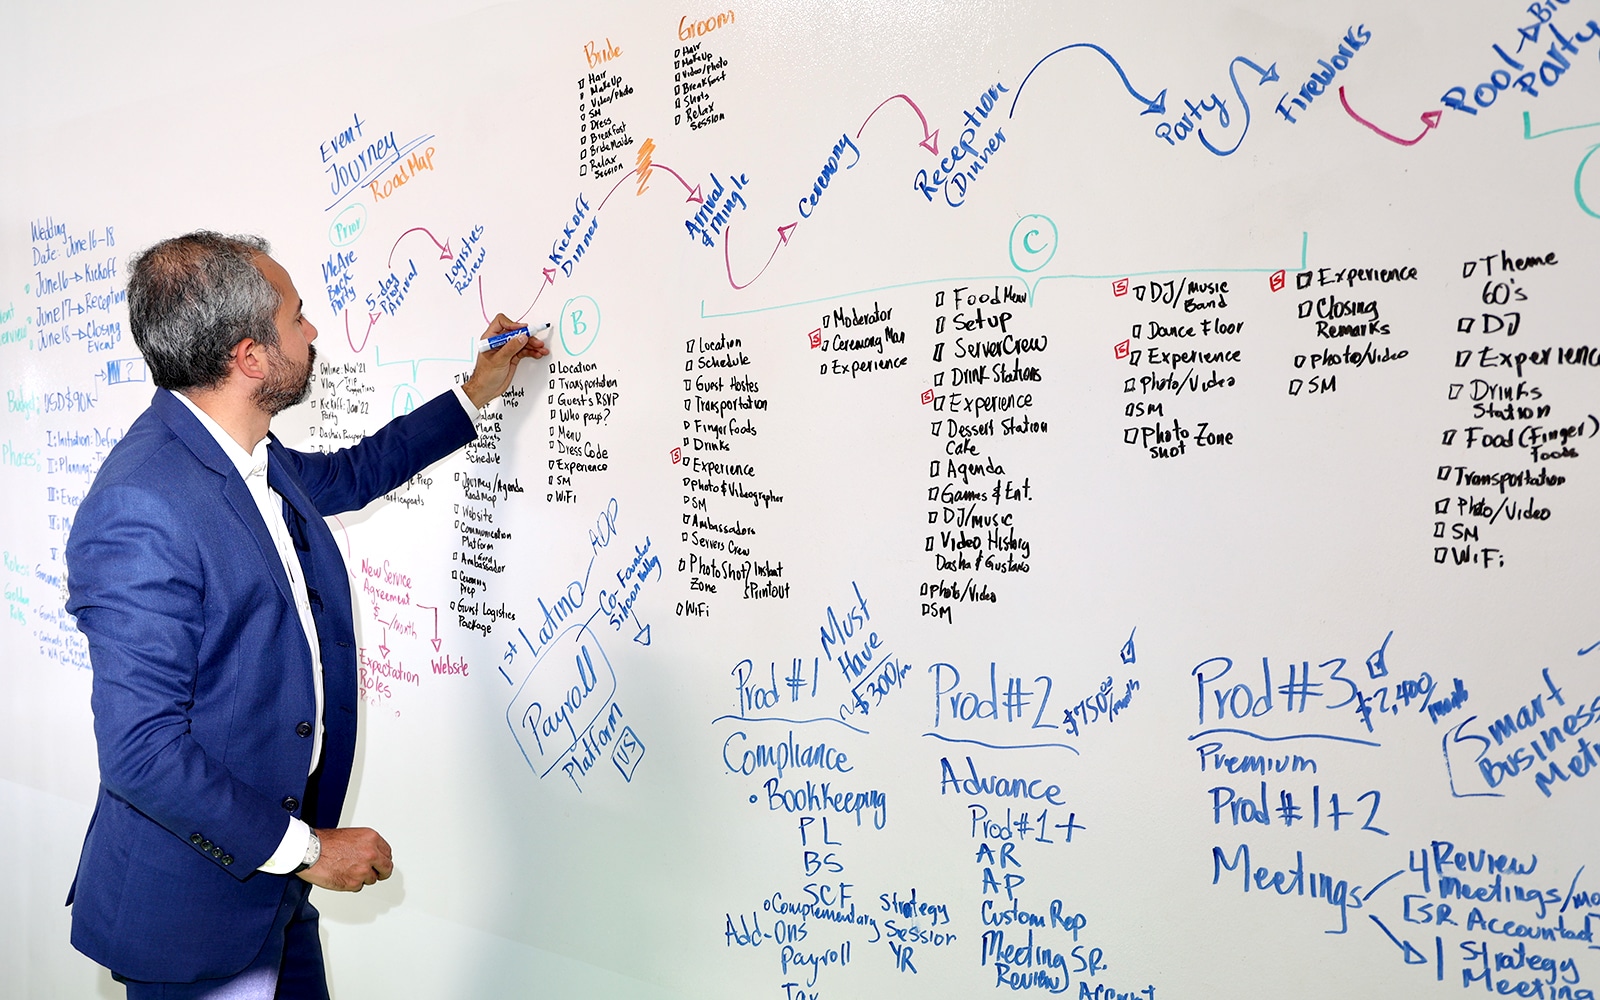 Wedding
Date: June 16-18
June 16→ Kickoff
June 17→ Reception
June 18→ Closing
Event
USD $90K
Phases:
I: Initiation:
Event
Journey
Road Map
Prior
We Are
Back
Party
5-day
Arrival
Logistics
Review
Kickoff
Dinner
Bride
Hair
MakeUp
Video/Photo
SM
Dress
Breakfast
BrideMaids
Relax
Session
Groom
Hair
MakeUp
Video/Photo
Breakfast
Shots
Relax
Session
Arrival
& Mingle
Ceremony
Reception
(Dinner
Party
Fireworks
Pool
Party
A
Online: Nov '21
Vlog
Kickoff: Jan '22
Party
Schedule
Journey/Agenda
Road Map
Website
Communication
Platform
Ambassador
Ceremony
Prep
Guest Logistics
Package
B
Location
Transportation
Guest's RSVP
Who pays?
Menu
Dress Code
Experience
SM
WiFi
C
Location
Schedule
Guest Hostes
Transportation
Finger foods
Drinks
S Experience
Photo & Videographer
SM
Ambassadors
Servers Crew
PhotoShot/Instant
Zone & Printout
WiFi
Moderator
S Ceremony Man
Experience
Food Menu
Setup
Server Crew
Drink Stations
S Experience
Dessert Station
Cake
Agenda
Games & Ent.
DJ/music
Video History
Dasha & Gustavo
Photo/Video
SM
S DJ/music
Band
Dance Floor
S Experience
Photo/Video
SM
Photo Zone
Shot
S Experience
Closing
Remarks
Photo/Video
SM
Theme
60's
DJ
Experience
Drinks
Station
Food (Finger)
foods
Transportation
Photo/Video
SM
WiFi
New Service
Agreement
$ __/month
Expectation
Roles
Website
1st Latino
ADP
Payroll
Platform
US
Co-Founder
Silicon Valley
Prod #1
Must
Have
~$300/m
Compliance
Bookkeeping
PL
BS
SCF
Complementary Strategy
Session
YR
Add-Ons
Payroll
Tax
Prod #2
$750⁰⁰/month
Advance
Prod #1 +
AR
AP
Custom Rep
Meeting SR.
Review)
Account
Prod #3
$2,400/month
Premium
Prod #1+2
Meetings
4 Review
meetings/mo
[SR. Accountant]
1 Strategy
Meeting
Smart
Business